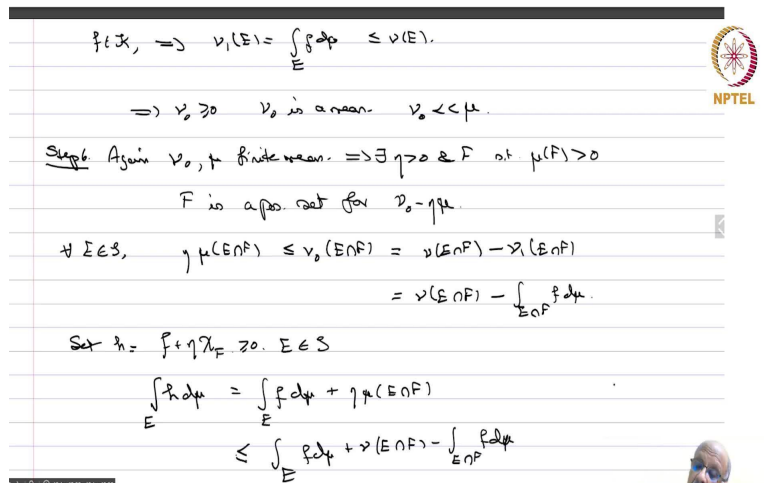 f ∈ K, => ν₁(E) = ∫_E f dμ ≤ ν(E).
=> ν₀ ≥ 0 ν₀ is a mean. ν₀ << μ.
NPTEL
Step 6. Again ν₀, μ finite mean. => ∃ η>0 & F s.t. μ(F)>0
F is a pos. set for ν₀-ημ.
∀ E∈S, η μ(E∩F) ≤ ν₀(E∩F) = ν(E∩F) - ν₁(E∩F)
= ν(E∩F) - ∫_{E∩F} f dμ.
Set h = f + η χ_F ≥ 0. E ∈ S
∫_E h dμ = ∫_E f dμ + η μ(E∩F)
≤ ∫_E f dμ + ν(E∩F) - ∫_{E∩F} f dμ